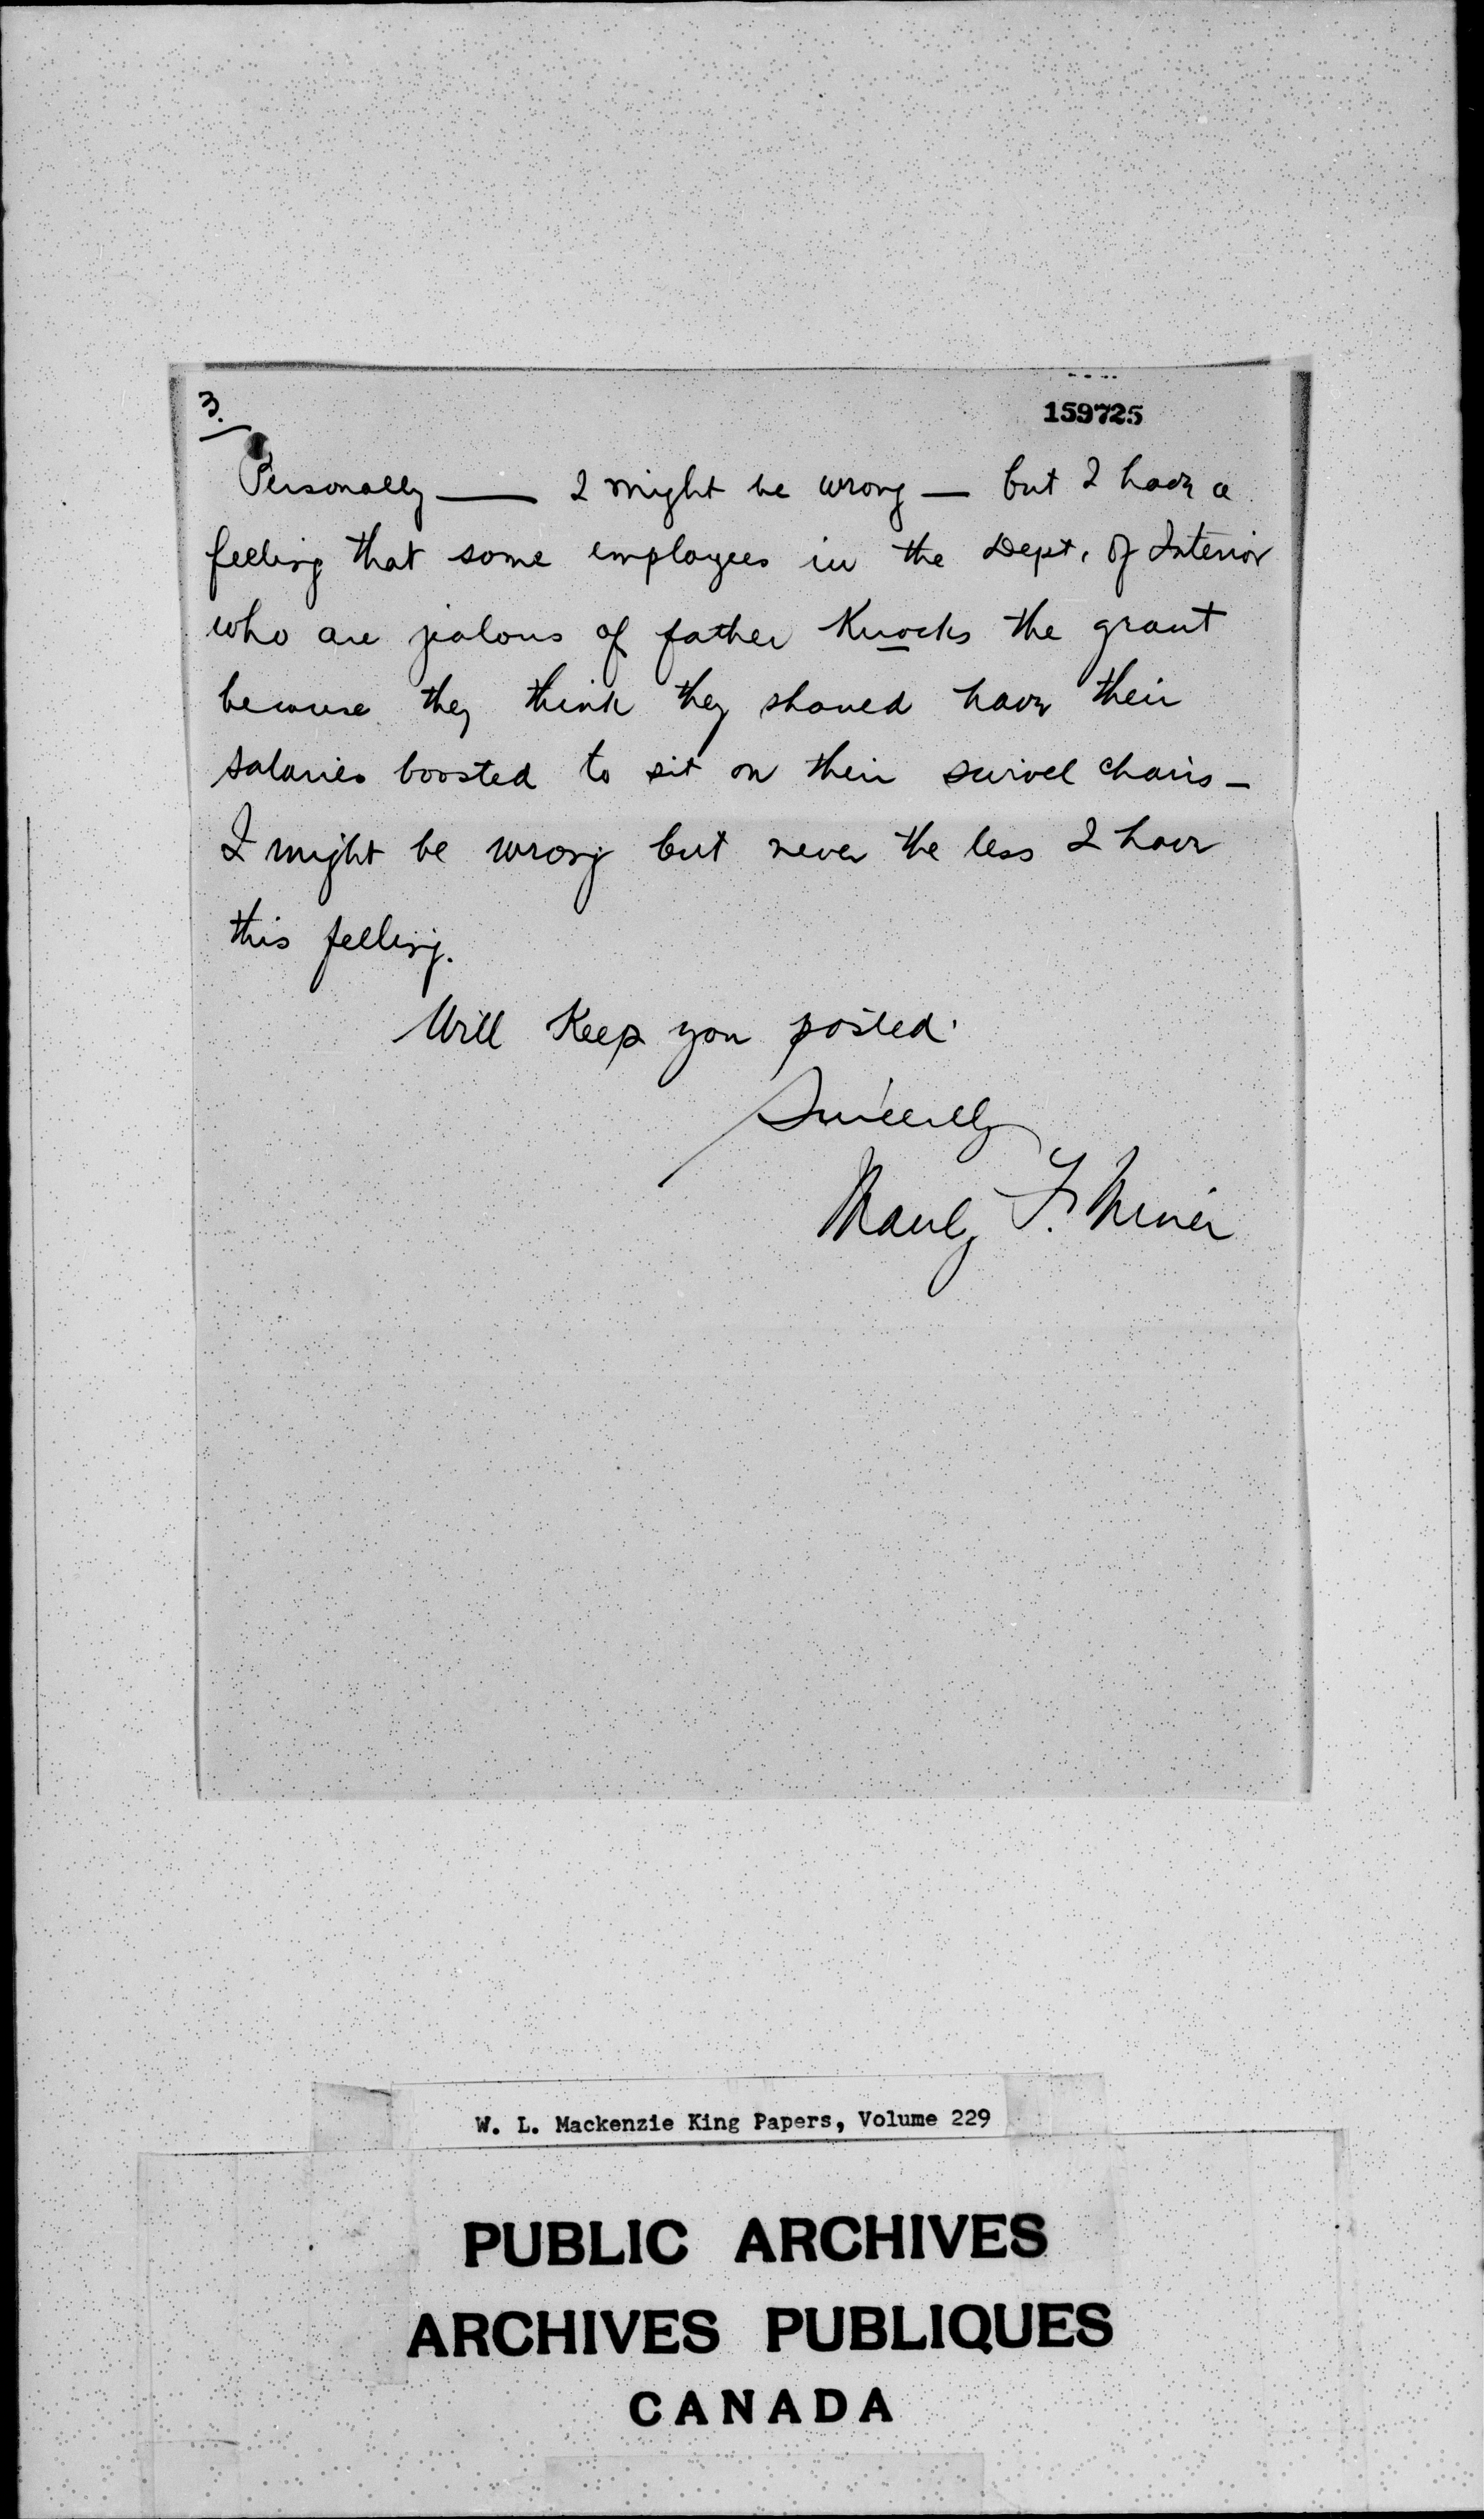 3.
159725
Personally — I might be wrong — but I have a
feeling that some employees in the Dept. of Interior
who are jealous of father Knocks the grant
because they think they should have their
salaries boosted to sit on their swivel chairs —
I might be wrong but never the less I have
this feeling.
Will Keep you posted.
Sincerely
Manly F. Miner
W. L. Mackenzie King Papers, Volume 229
PUBLIC ARCHIVES
ARCHIVES PUBLIQUES
CANADA